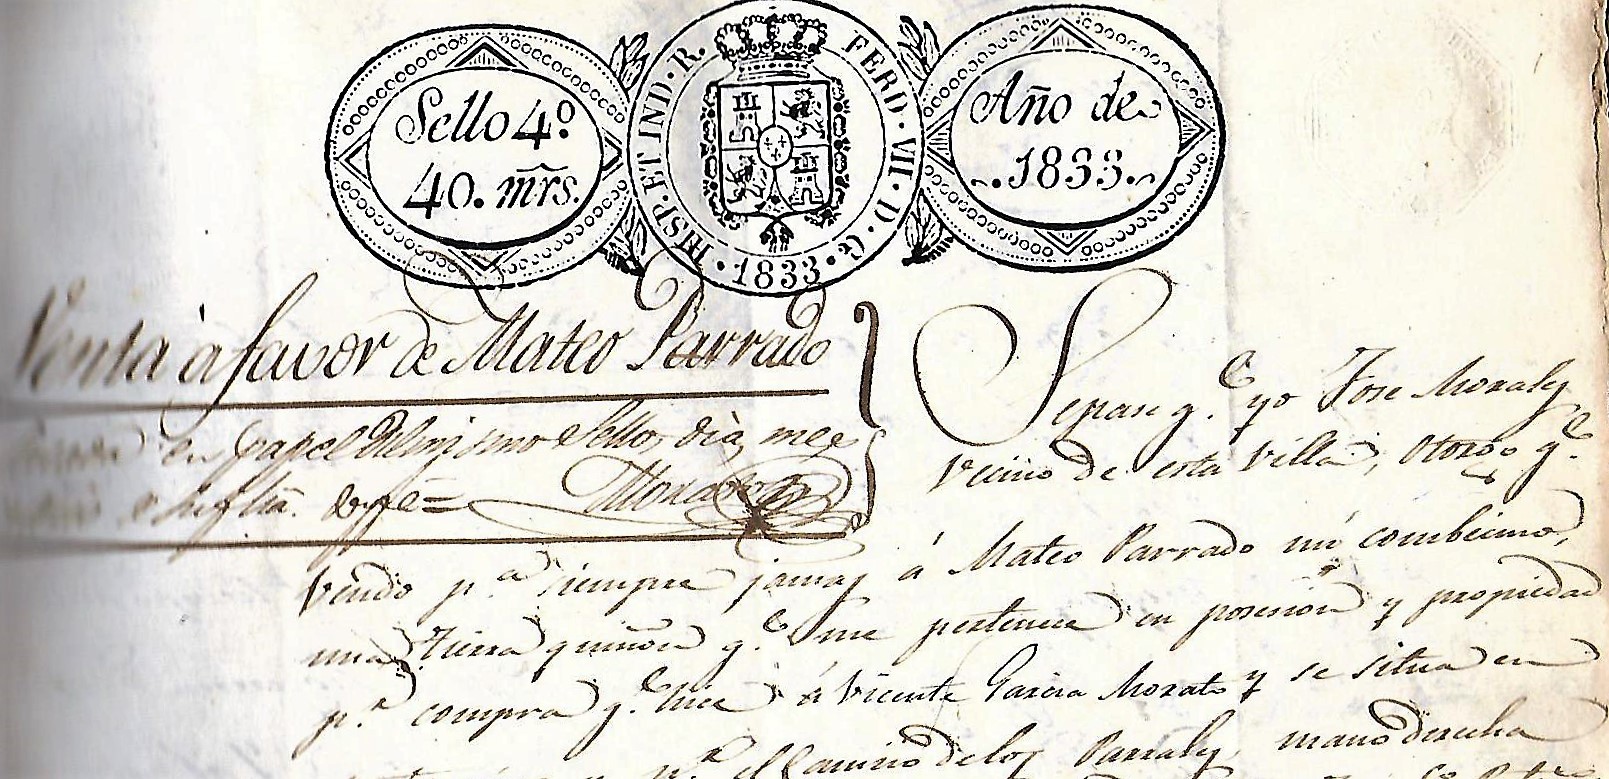 Sello 4.º
40. mrs.
HISP. ET IND. R. FERD. VII. D. G. 1833.
Año de
1833.
Venta à favor de Mateo Parrado
en papel del mismo Sello, dia, mes
doy fe = Morato
Sepase q.e yo Jose Morales
vecino de esta Villa, otorgo q.e
vendo p.a siempre jamas á Mateo Parrado mi combecino,
una tierra quiñon q.e me pertenece en posesion y propiedad
p.r compra q.e hice á Vicente Garcia Morato y se situa en
el Camino de los Parrales, mano derecha